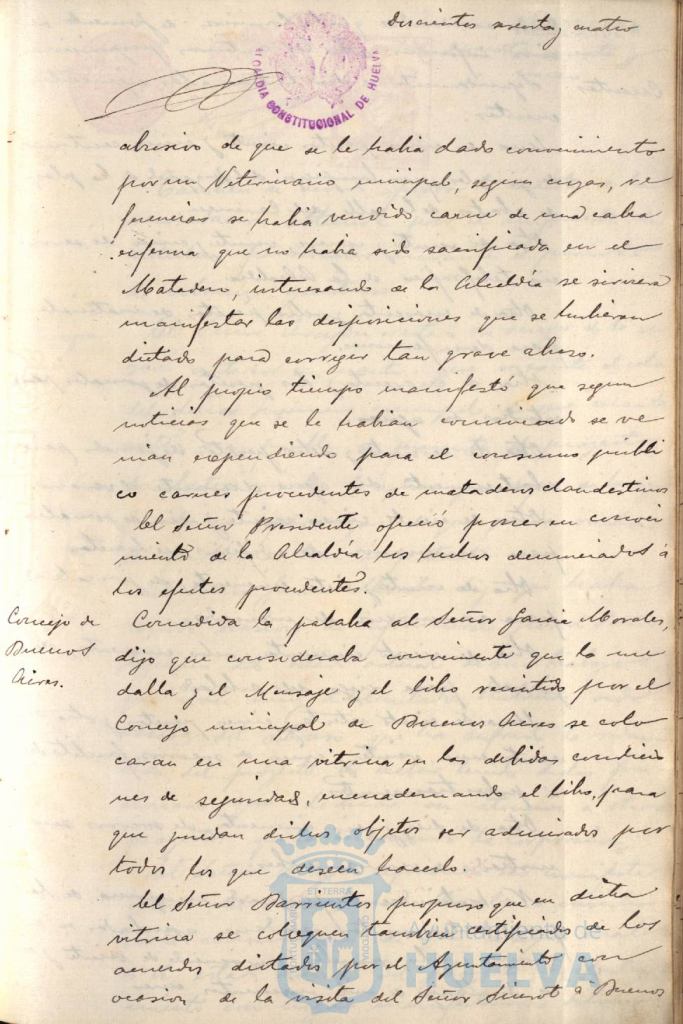 Discientos sesenta y cuatro
ALCALDIA CONSTITUCIONAL DE HUELVA
abusivo de que se le habia dado conocimiento
por un Veterinario municipal, segun cuyas, re
ferencias se habia vendido carne de una cabra
enferma que no habia sido sacrificada en el
Matadero, interesando de la Alcaldía se sirviera
manifestar las disposiciones que se hubieran
dictado para corregir tan grave abuso.
Al propio tiempo manifestó que segun
noticias que se le habian comunicado se ve
nian expendiendo para el consumo públi
co carnes procedentes de mataderos clandestinos
El Señor Presidente ofreció poner en conoci
miento de la Alcaldía los hechos denunciados á
los efectos procedentes.
Concejo de
Buenos
Aires.
Concedida la palabra al Señor Garcia Morales,
dijo que consideraba conveniente que la me
dalla y el Mensaje y el libro remitido por el
Concejo municipal de Buenos Aires se colo
caran en una vitrina en las debidas condicio
nes de seguridad, encuadernando el libro, para
que puedan dichos objetos ser admirados por
todos los que deseen hacerlo.
El Señor Barrientos propuso que en dicha
vitrina se coloquen tambien certificados de los
acuerdos dictados por el Ayuntamiento con
ocasion de la visita del Señor Siurot a Buenos
Ayuntamiento de
HUELVA